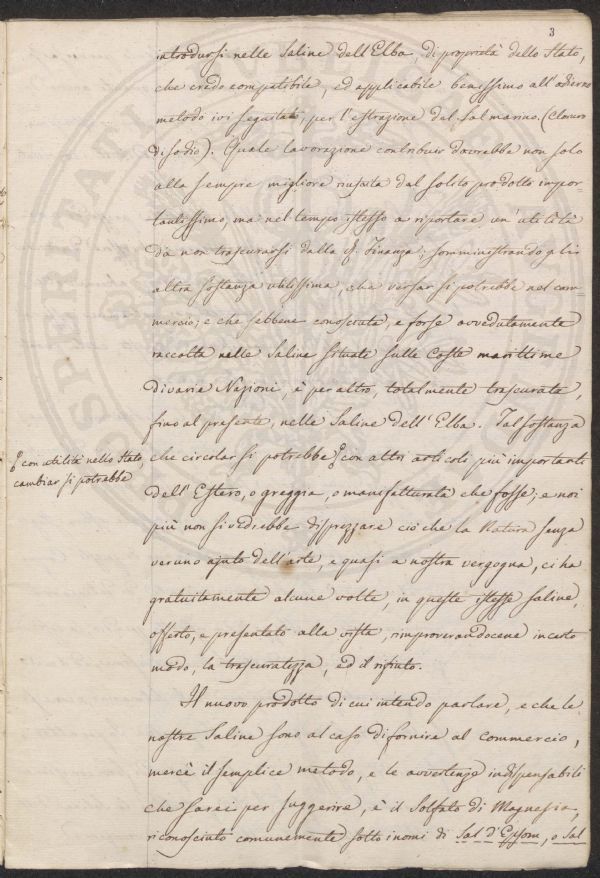 3
introdursi nelle Saline dell'Elba, di proprietà dello Stato,
che credo compatibile, ed applicabile benissimo all'odierno
metodo ivi seguitato, per l'estrazione del Sal marino. (Cloruro
di Sodio). Quale lavorazione contribuir dovrebbe non solo
alla sempre migliore riuscita del solito prodotto impor-
tantissimo, ma nel tempo istesso a riportare un'utilità
da non trascurarsi dalla R. Finanza; somministrando gli
altra sostanza utilissima, che versar si potrebbe nel com-
mercio; e che sebbene conosciuta, e forse avvedutamente
raccolta nelle Saline situate sulle Coste marittime
di varie Nazioni, è per altro, totalmente trascurata,
fino al presente, nelle Saline dell'Elba. Tal sostanza
che circolar si potrebbe con altri articoli più importanti
con utilità nello Stato,
cambiar si potrebbe
dell'Estero, o greggia, o manufatturata che fosse; e noi
più non si vedrebbe disprezzare ciò che la Natura senza
veruno ajuto dell'arte, e quasi a nostra vergogna, ci ha
gratuitamente alcune volte, in queste istesse saline,
offerto, e presentato alla vista, rimproverandocene in certo
modo, la trascuratezza, ed il rifiuto.
Il nuovo prodotto di cui intendo parlare, e che le
nostre Saline sono al caso di fornire al commercio,
mercè il semplice metodo, e le avvertenze indispensabili
che sarei per suggerire, è il Solfato di Magnesia,
riconosciuto comunemente sotto i nomi di Sal d'Epsom, o Sal